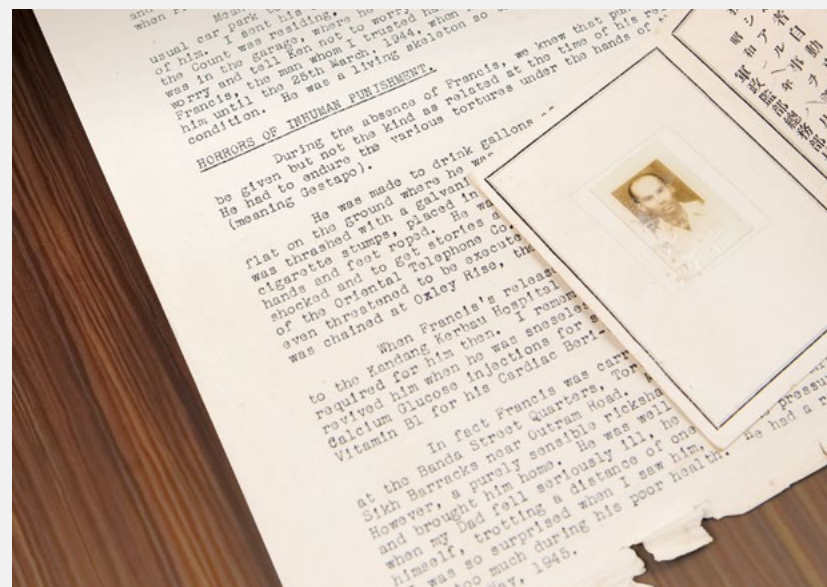 and
when Fr
Mean
usual car park to
of him. I sent his
the Count was residing.
was in the garage, where he
worry and tell Ken not to worry
Francis, the man whom I trusted ha
him until the 25th March, 1944, when
condition. He was a living skeleton so
HORRORS OF INHUMAN PUNISHMENT.
During the absence of Francis, we knew that pun
be given but not the kind as related at the time of his rel
He had to endure the various tortures under the hands of
(meaning Gestapo).
He was made to drink gallons of
flat on the ground where he was
was thrashed with a galvani
cigarette stumps, placed in
hands and feet roped. He wa
shocked and to get stories a
of the Oriental Telephone Co.
even threatened to be execute
was chained at Oxley Rise, the
When Francis's release
to the Kandang Kerbau Hospital
required for him then. I remem
revived him when he was sneseles
Calcium Glucose injections for s
Vitamin B1 for his Cardiac Beri-
In fact Francis was carr
at the Banda Street Quarters, Tor
Sikh Barracks near Outram Road.
However, a purely sensible ricksha
and brought him home. He was well
when my Dad fell seriously ill, he
himself, trotting a distance of one
was so surprised when I saw him,
too much during his poor health. He had a r
pressu
ay, 1945.
者自動
シアル事
昭和 年
軍政監部總務部